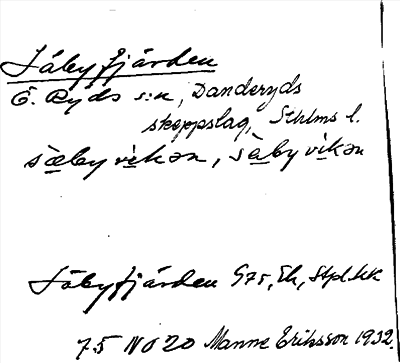 Säbyfjärden
Ö. Ryds s:n, Danderyds
skeppslag, Sthlms l.
sæbyvikən, sàbyvikən
Säbyfjärden G75, Ek, Stpl. kk
75 NO 20 Manne Eriksson 1932.